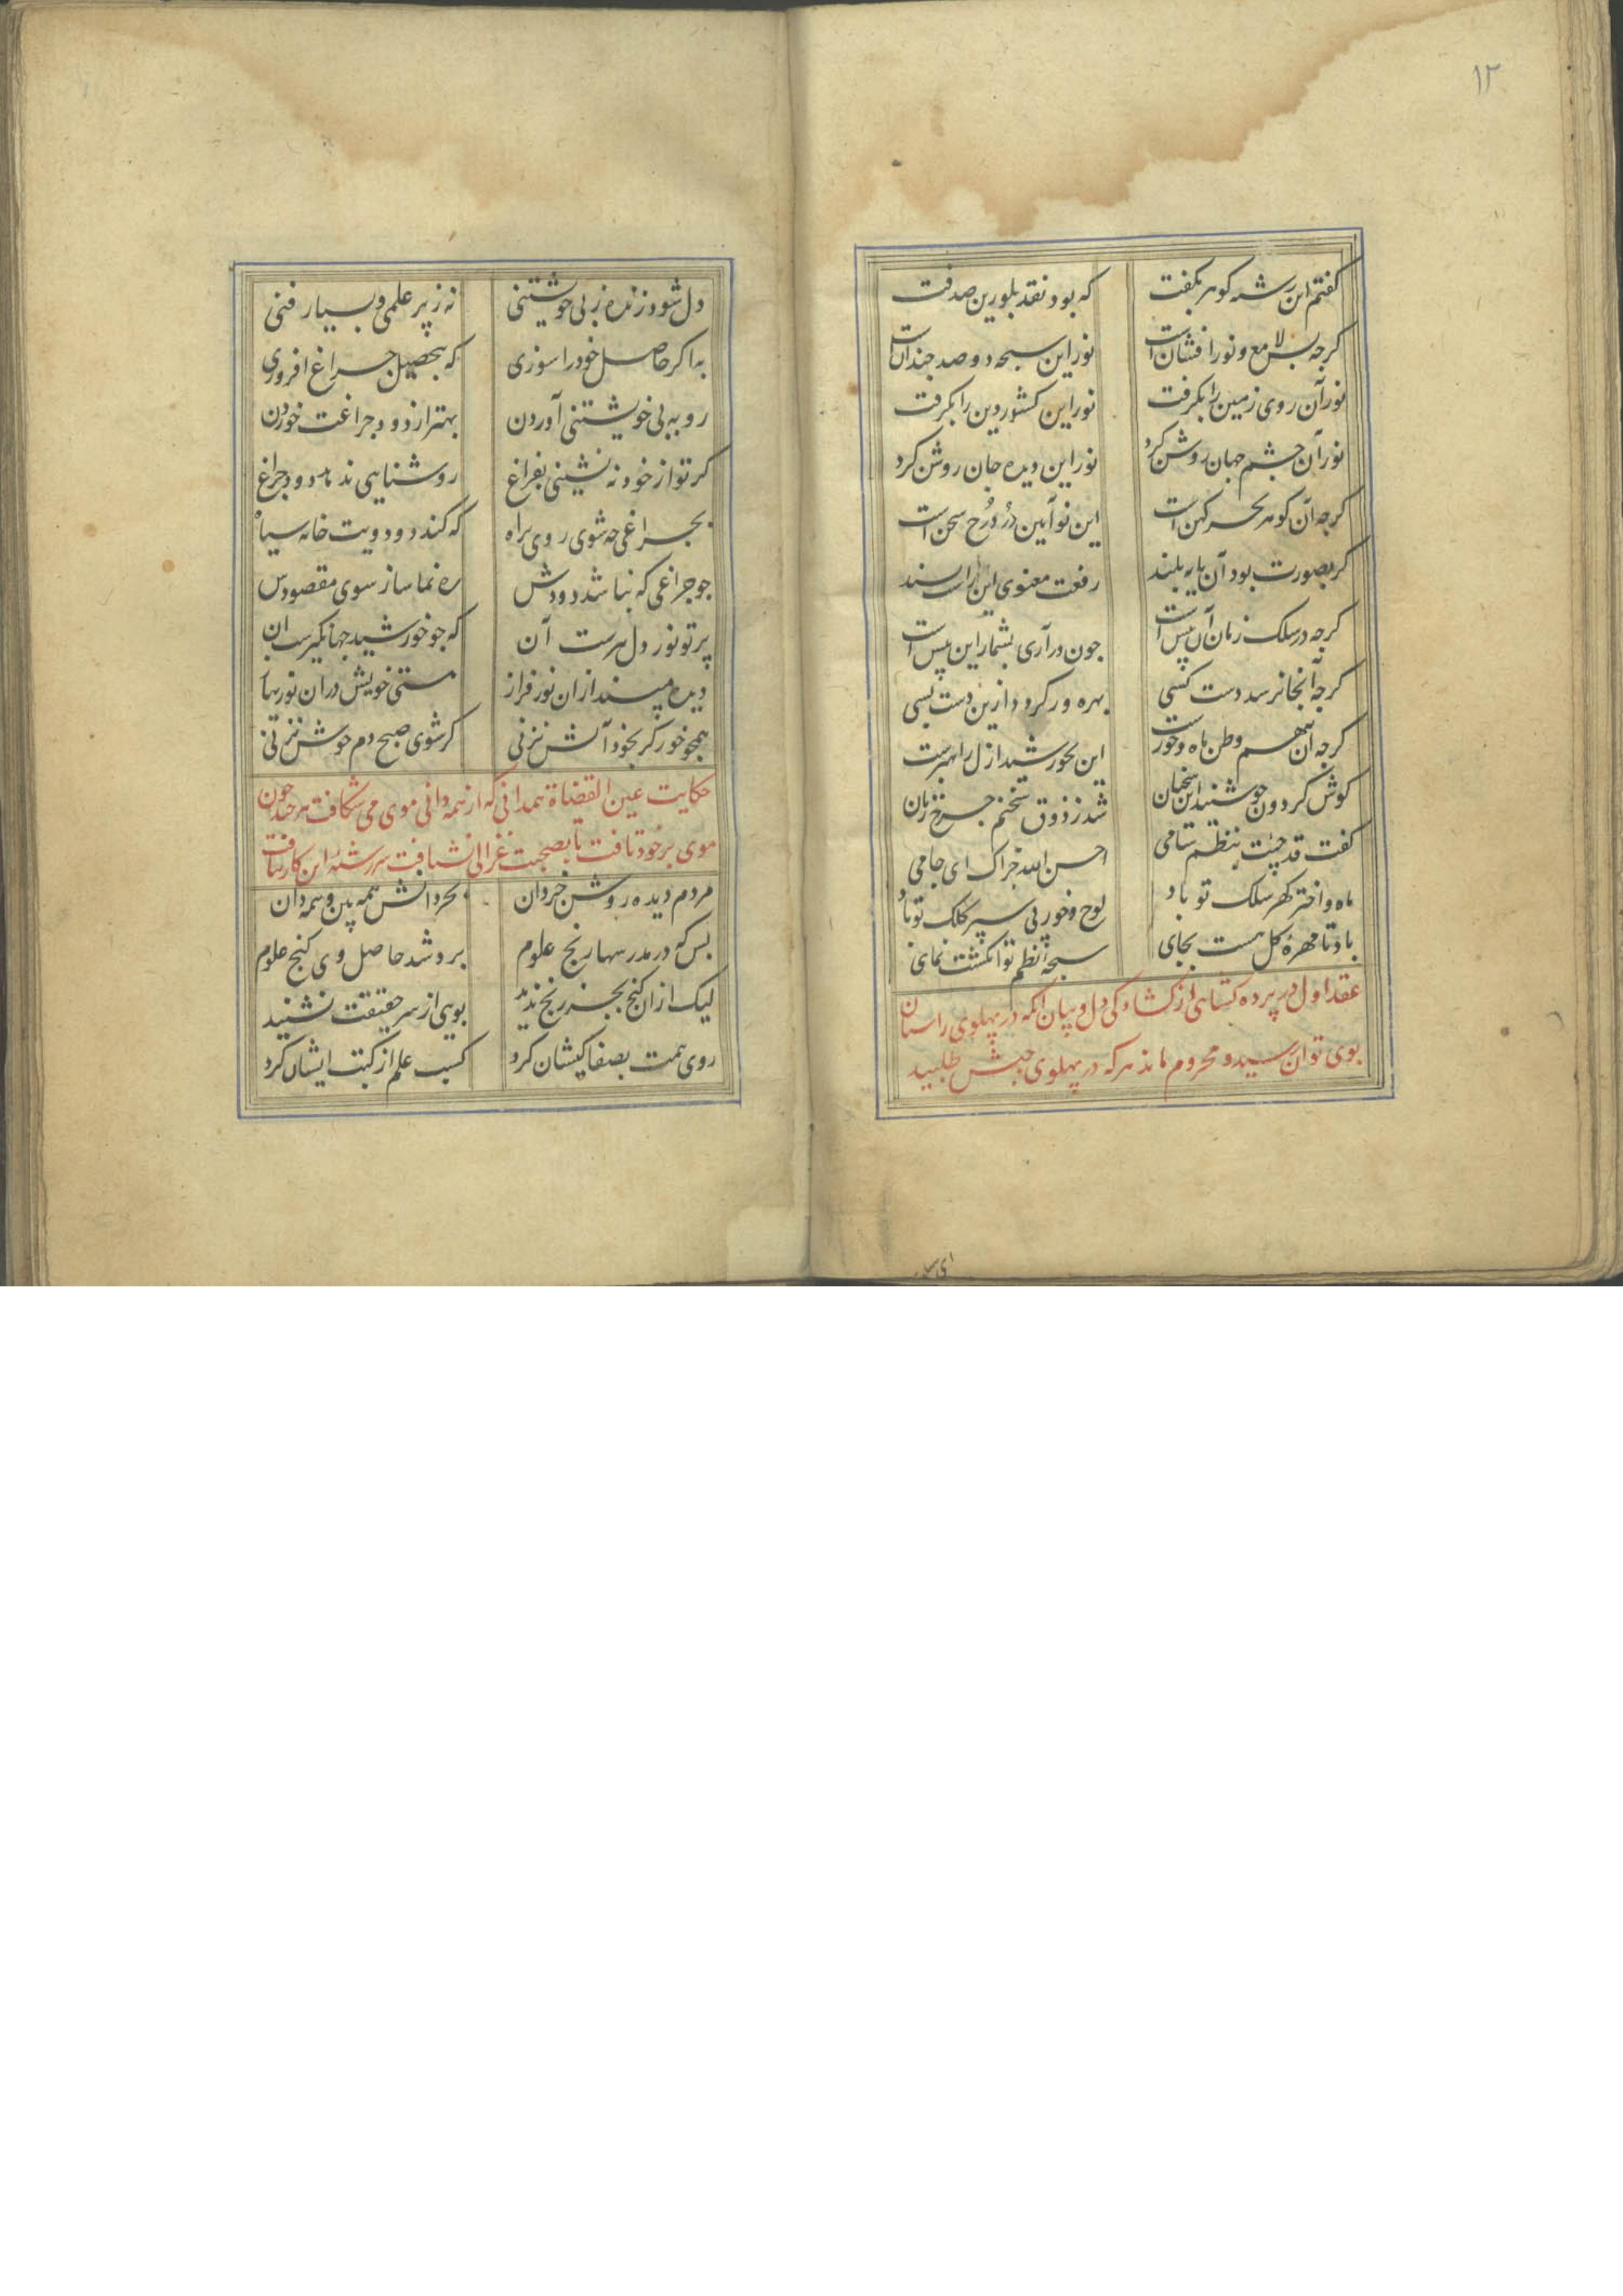 ۱۲
کفتم این رشته کوهر بکفت که بود نقد بلورین صدفت
کرجه بس لامع و نورافشان است نور این سبحه دو صد جندان است
نور آن روی زمین را بکرفت نور این کشور دین را بکرفت
نور آن جشم جهان روشن کرد نور این دیده جان روشن کرد
کرجه آن کوهر بحر کهن است این نو آیین در درج سخن است
کر بصورت بود آن پایه بلند رفعت معنوی این راست سند
کرجه در سلک زمان آن پیش است جون درآری بشمار این بیش است
کرجه آنجا نرسد دست کسی بهره ور کردد ازین دست بسی
کرجه آن هم وطن ماه و خورست این بخورشید ازل راهبرست
کوش کردون جو شنید این سخنان شد ز ذوق سخنم جرخ زنان
کفت قد جئت بنظم سامی احسن الله جزاک ای جامی
ماه و اختر کهر سلک تو باد لوح و خور پی سپر کلک تو باد
باد تا مهره کل هست بجای سبحه نظم تو انکشت نمای
عقد اول در پرده کشایی از کشادکی دل و بیان آنکه در پهلوی راستان
بوی توان رسید و محروم ماند هرکه در پهلوی جبش طلبید
دل شود زنده ز بی خویشتنی نه ز پر علمی و بسیار فنی
به اکر حاصل خود را سوزی که بتحصیل جراغ افروزی
رو به بی خویشتنی آوردن بهتر از دود جراغت خوردن
کر تو از خود نه نشینی بفراغ روشنایی ندهد دود جراغ
بجراغی جه شوی روی براه که کند دود ویت خانه سیاه
جو جراغی که نباشد دودش ره نما ساز سوی مقصودش
پرتو نور دل هرست آن که جو خورشید جهانکیرست آن
دیده مپسند از آن نور فراز هستی خویش در آن نور بباز
همجو خور کر بخود آتش نزنی کر شوی صبح دم خوش نزنی
حکایت عین القضاة همدانی که از همه دانی موی می شکافت هر چند جون
موی بر خود تافت تا بصحبت غزالی نشتافت سررشته این کار نیافت
مردم دیده روشن خردان بخرد دانش همه بین و همه دان
بس که در مدرسها رنج علوم برد و شد حاصل وی کنج علوم
لیک از آن کنج بجز رنج ندید بویی از سر حقیقت نشنید
روی همت بصفاکیشان کرد کسب علم از کتب ایشان کرد